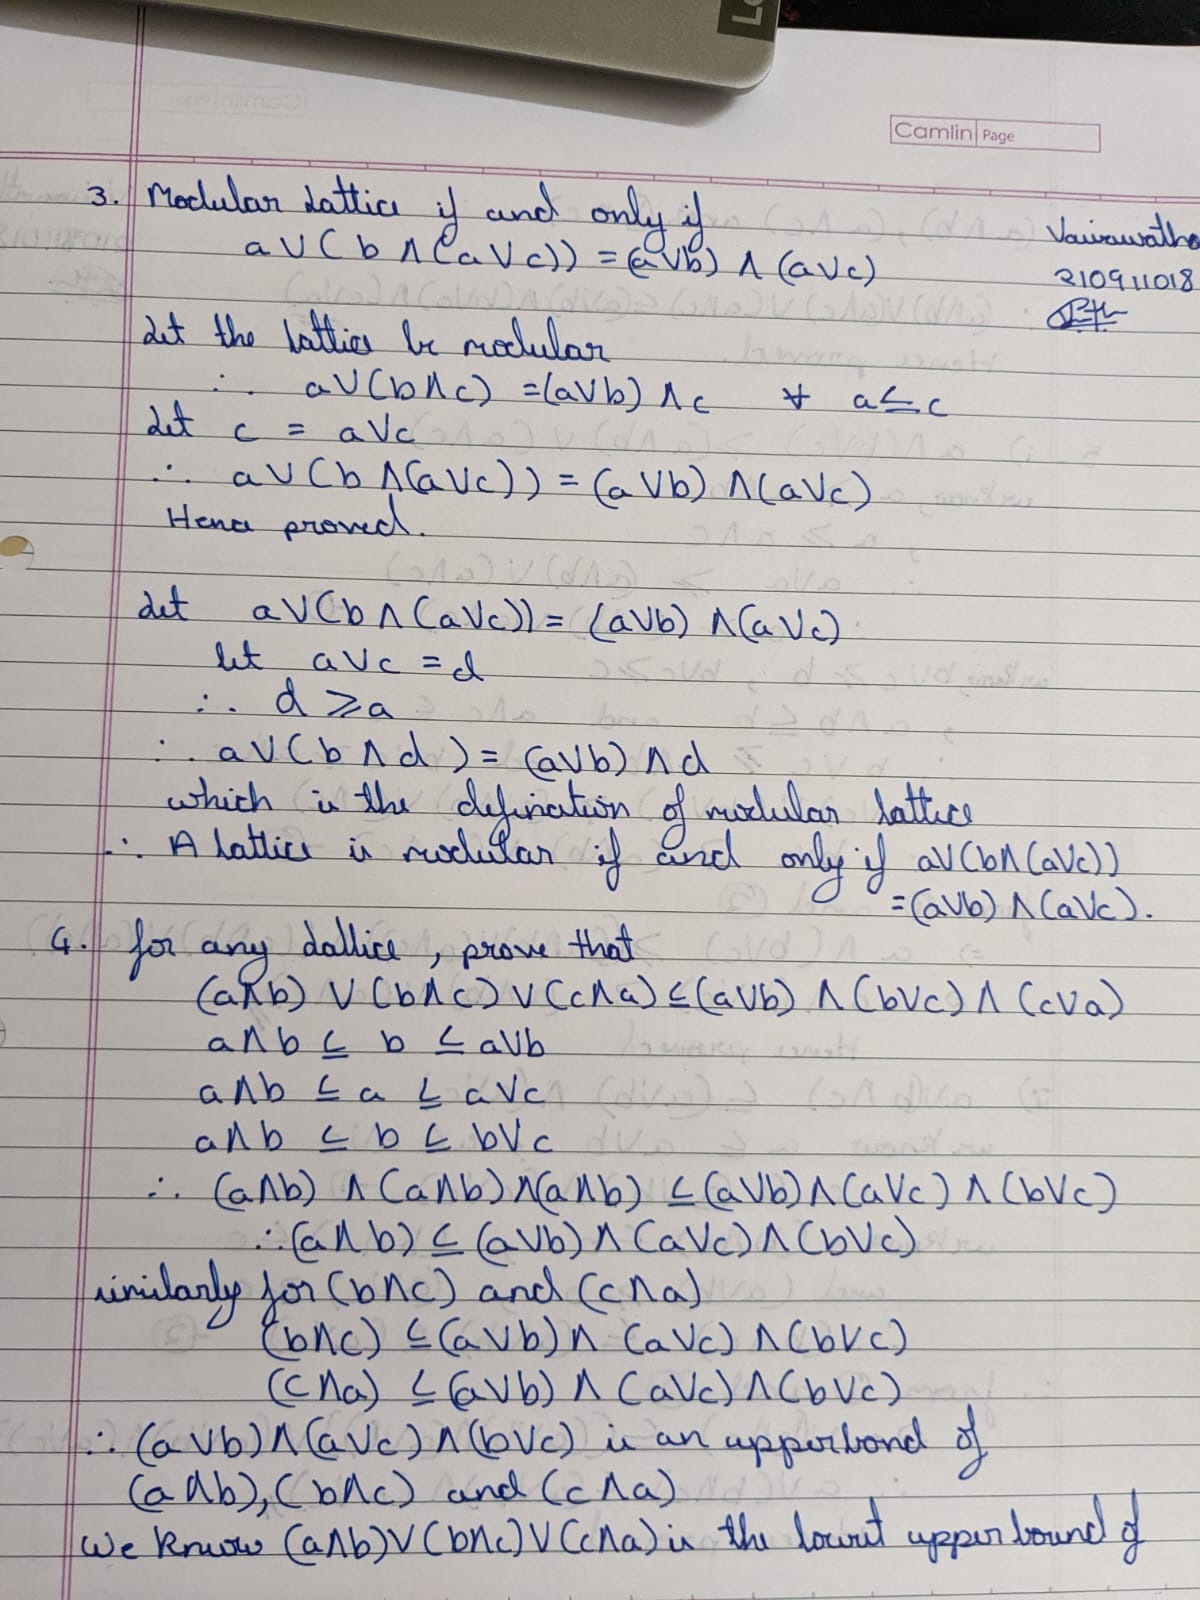 Camlin Page
3. Modular Lattice if and only if
a∨(b∧(a∨c)) = (a∨b) ∧ (a∨c)
210911018
Let the lattice be modular
∴ a∨(b∧c) = (a∨b) ∧c ∀ a≤c
Let c = a∨c
∴ a∨(b∧(a∨c)) = (a∨b) ∧(a∨c)
Hence proved.
Let a∨(b∧(a∨c)) = (a∨b) ∧(a∨c)
let a∨c = d
∴ d ≥ a
∴ a∨(b∧d) = (a∨b) ∧d
which is the defination of modular lattice
∴ A lattice is modular if and only if a∨(b∧(a∨c))
= (a∨b) ∧(a∨c).
4. for any lattice, prove that
(a∧b) ∨ (b∧c) ∨ (c∧a) ≤ (a∨b) ∧ (b∨c) ∧ (c∨a)
a∧b ≤ b ≤ a∨b
a∧b ≤ a ≤ a∨c
a∧b ≤ b ≤ b∨c
∴ (a∧b) ∧ (a∧b) ∧(a∧b) ≤ (a∨b)∧(a∨c) ∧ (b∨c)
∴ (a∧b) ≤ (a∨b) ∧ (a∨c) ∧ (b∨c)
similarly for (b∧c) and (c∧a)
(b∧c) ≤ (a∨b) ∧ (a∨c) ∧ (b∨c)
(c∧a) ≤ (a∨b) ∧ (a∨c) ∧ (b∨c)
∴ (a∨b)∧(a∨c)∧(b∨c) is an upperbond of
(a∧b), (b∧c) and (c∧a)
We know (a∧b)∨(b∧c)∨(c∧a) is the lowest upper bound of